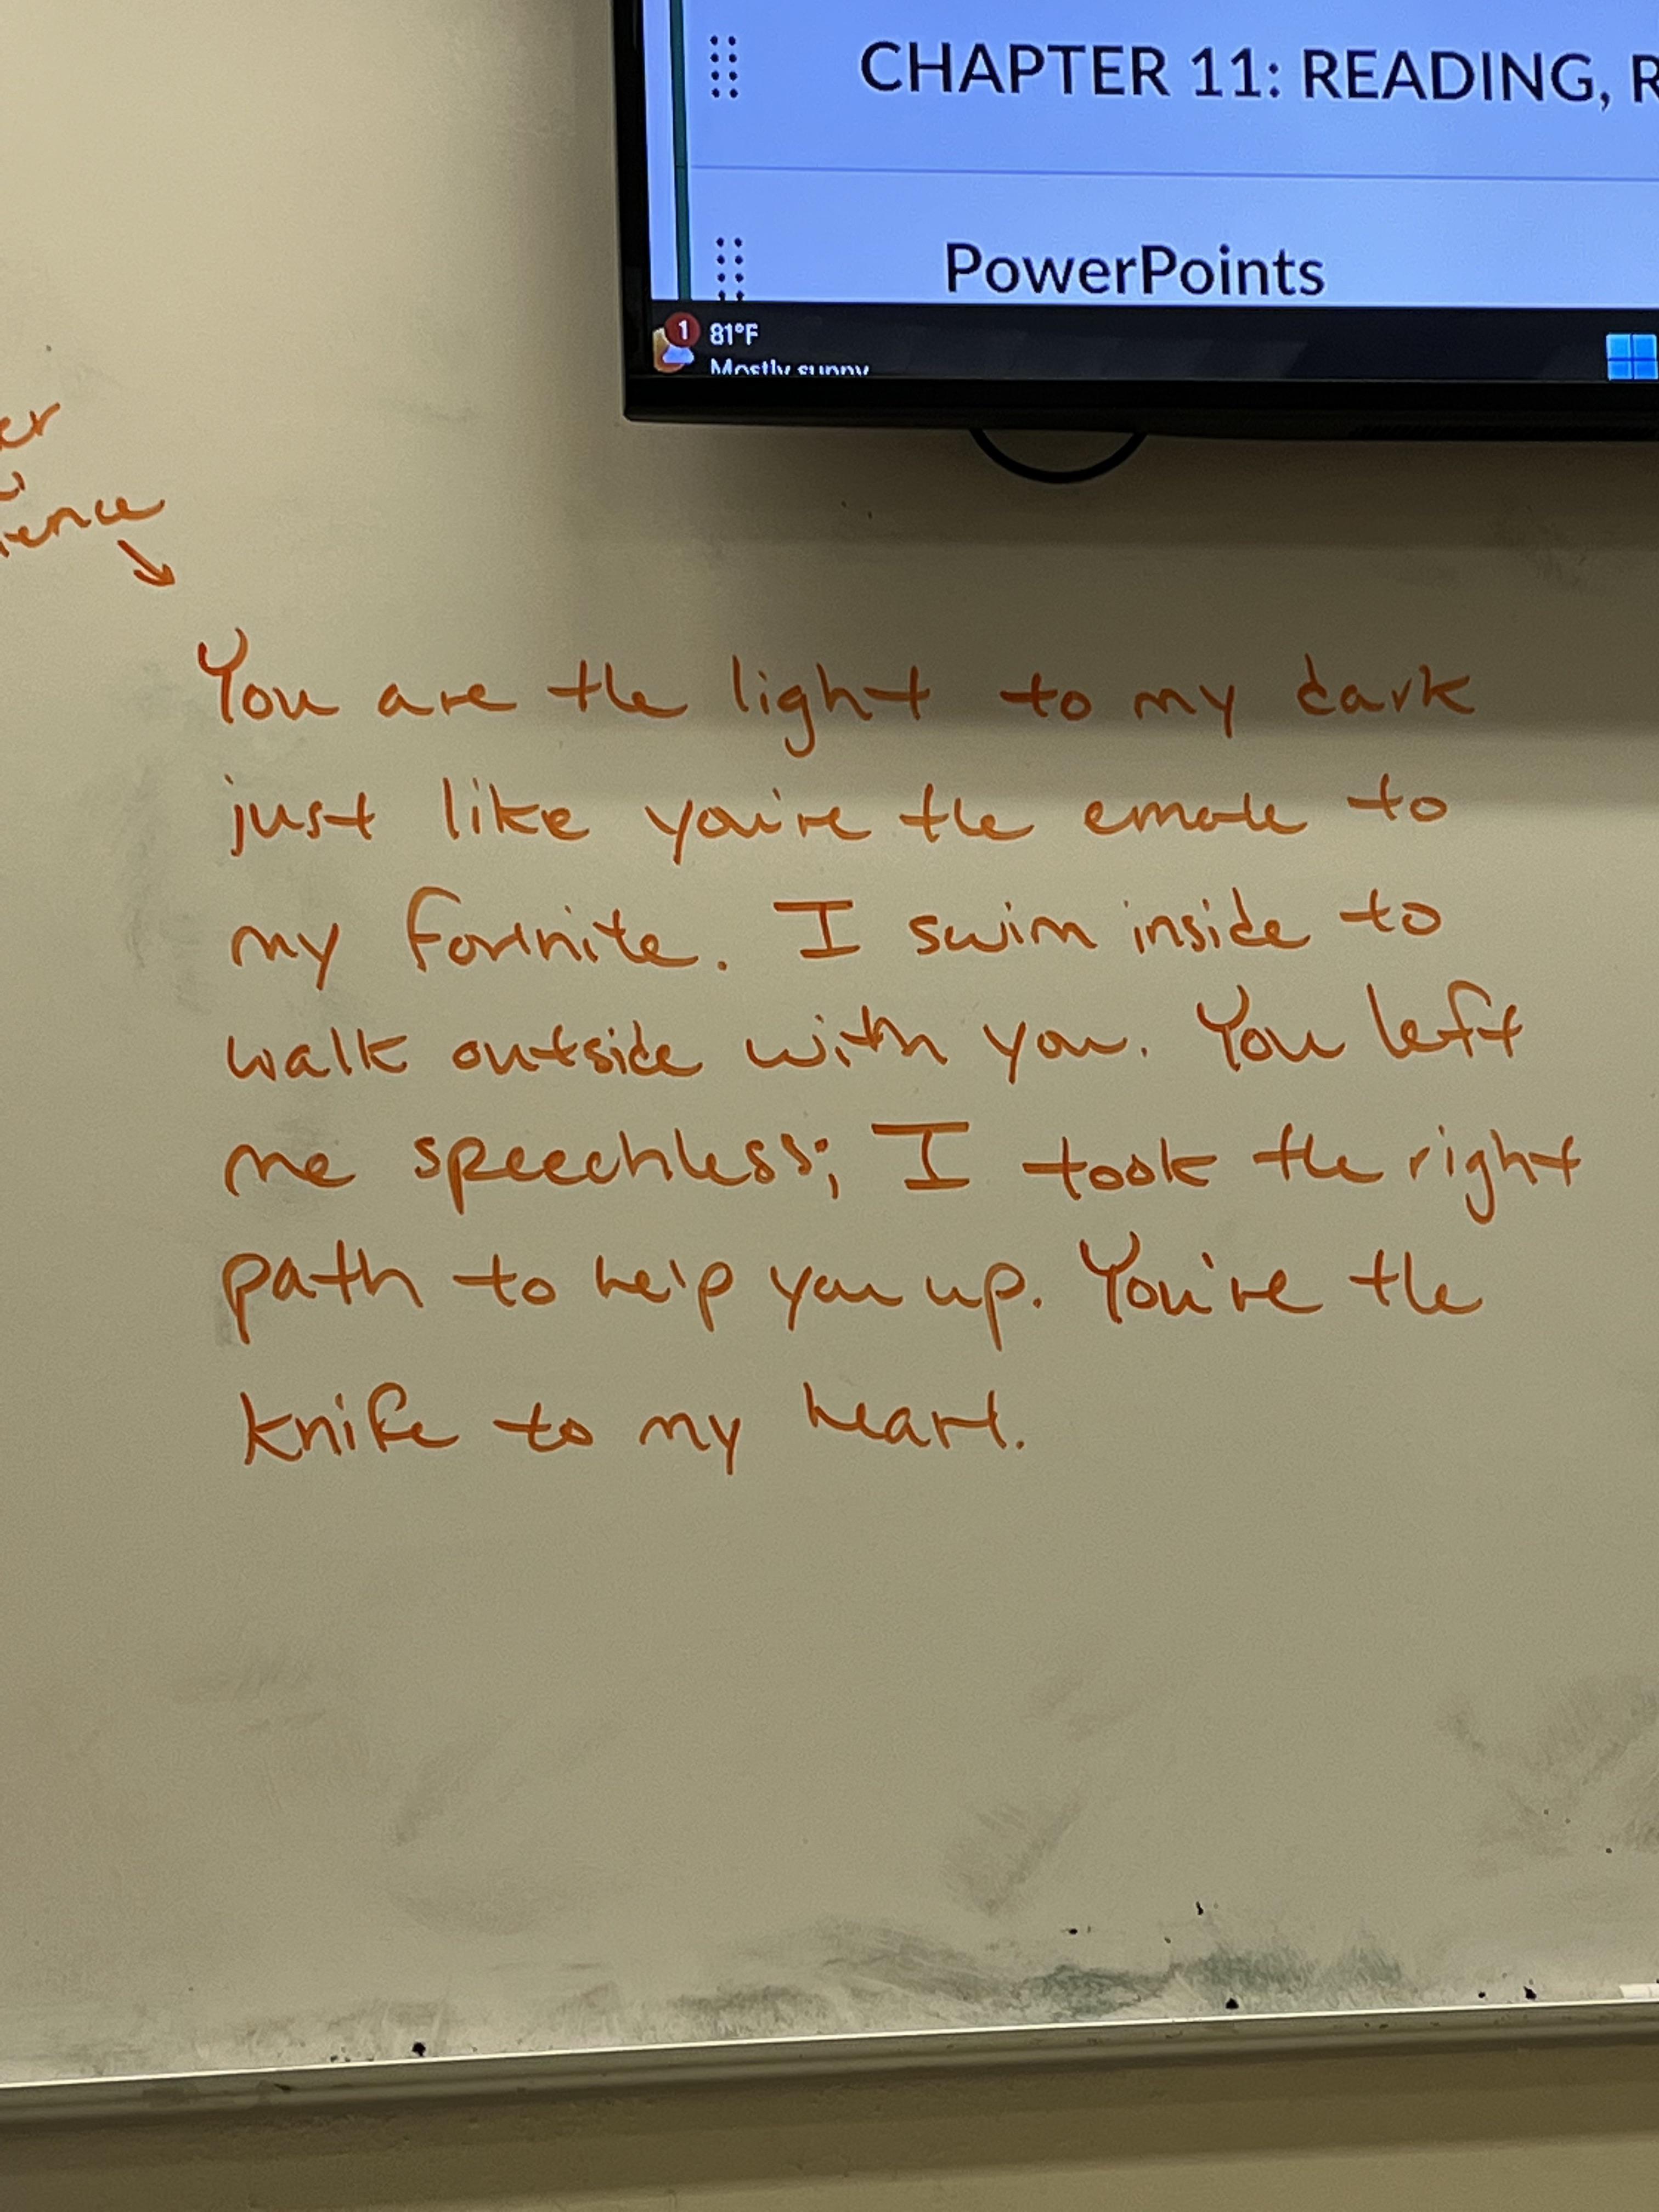 CHAPTER 11: READING, R
PowerPoints
1
81°F
Mostly sunny
er
ience
You are the light to my dark
just like you're the emote to
my fornite. I swim inside to
walk outside with you. You left
me speechless; I took the right
path to help you up. You're the
knife to my heart.